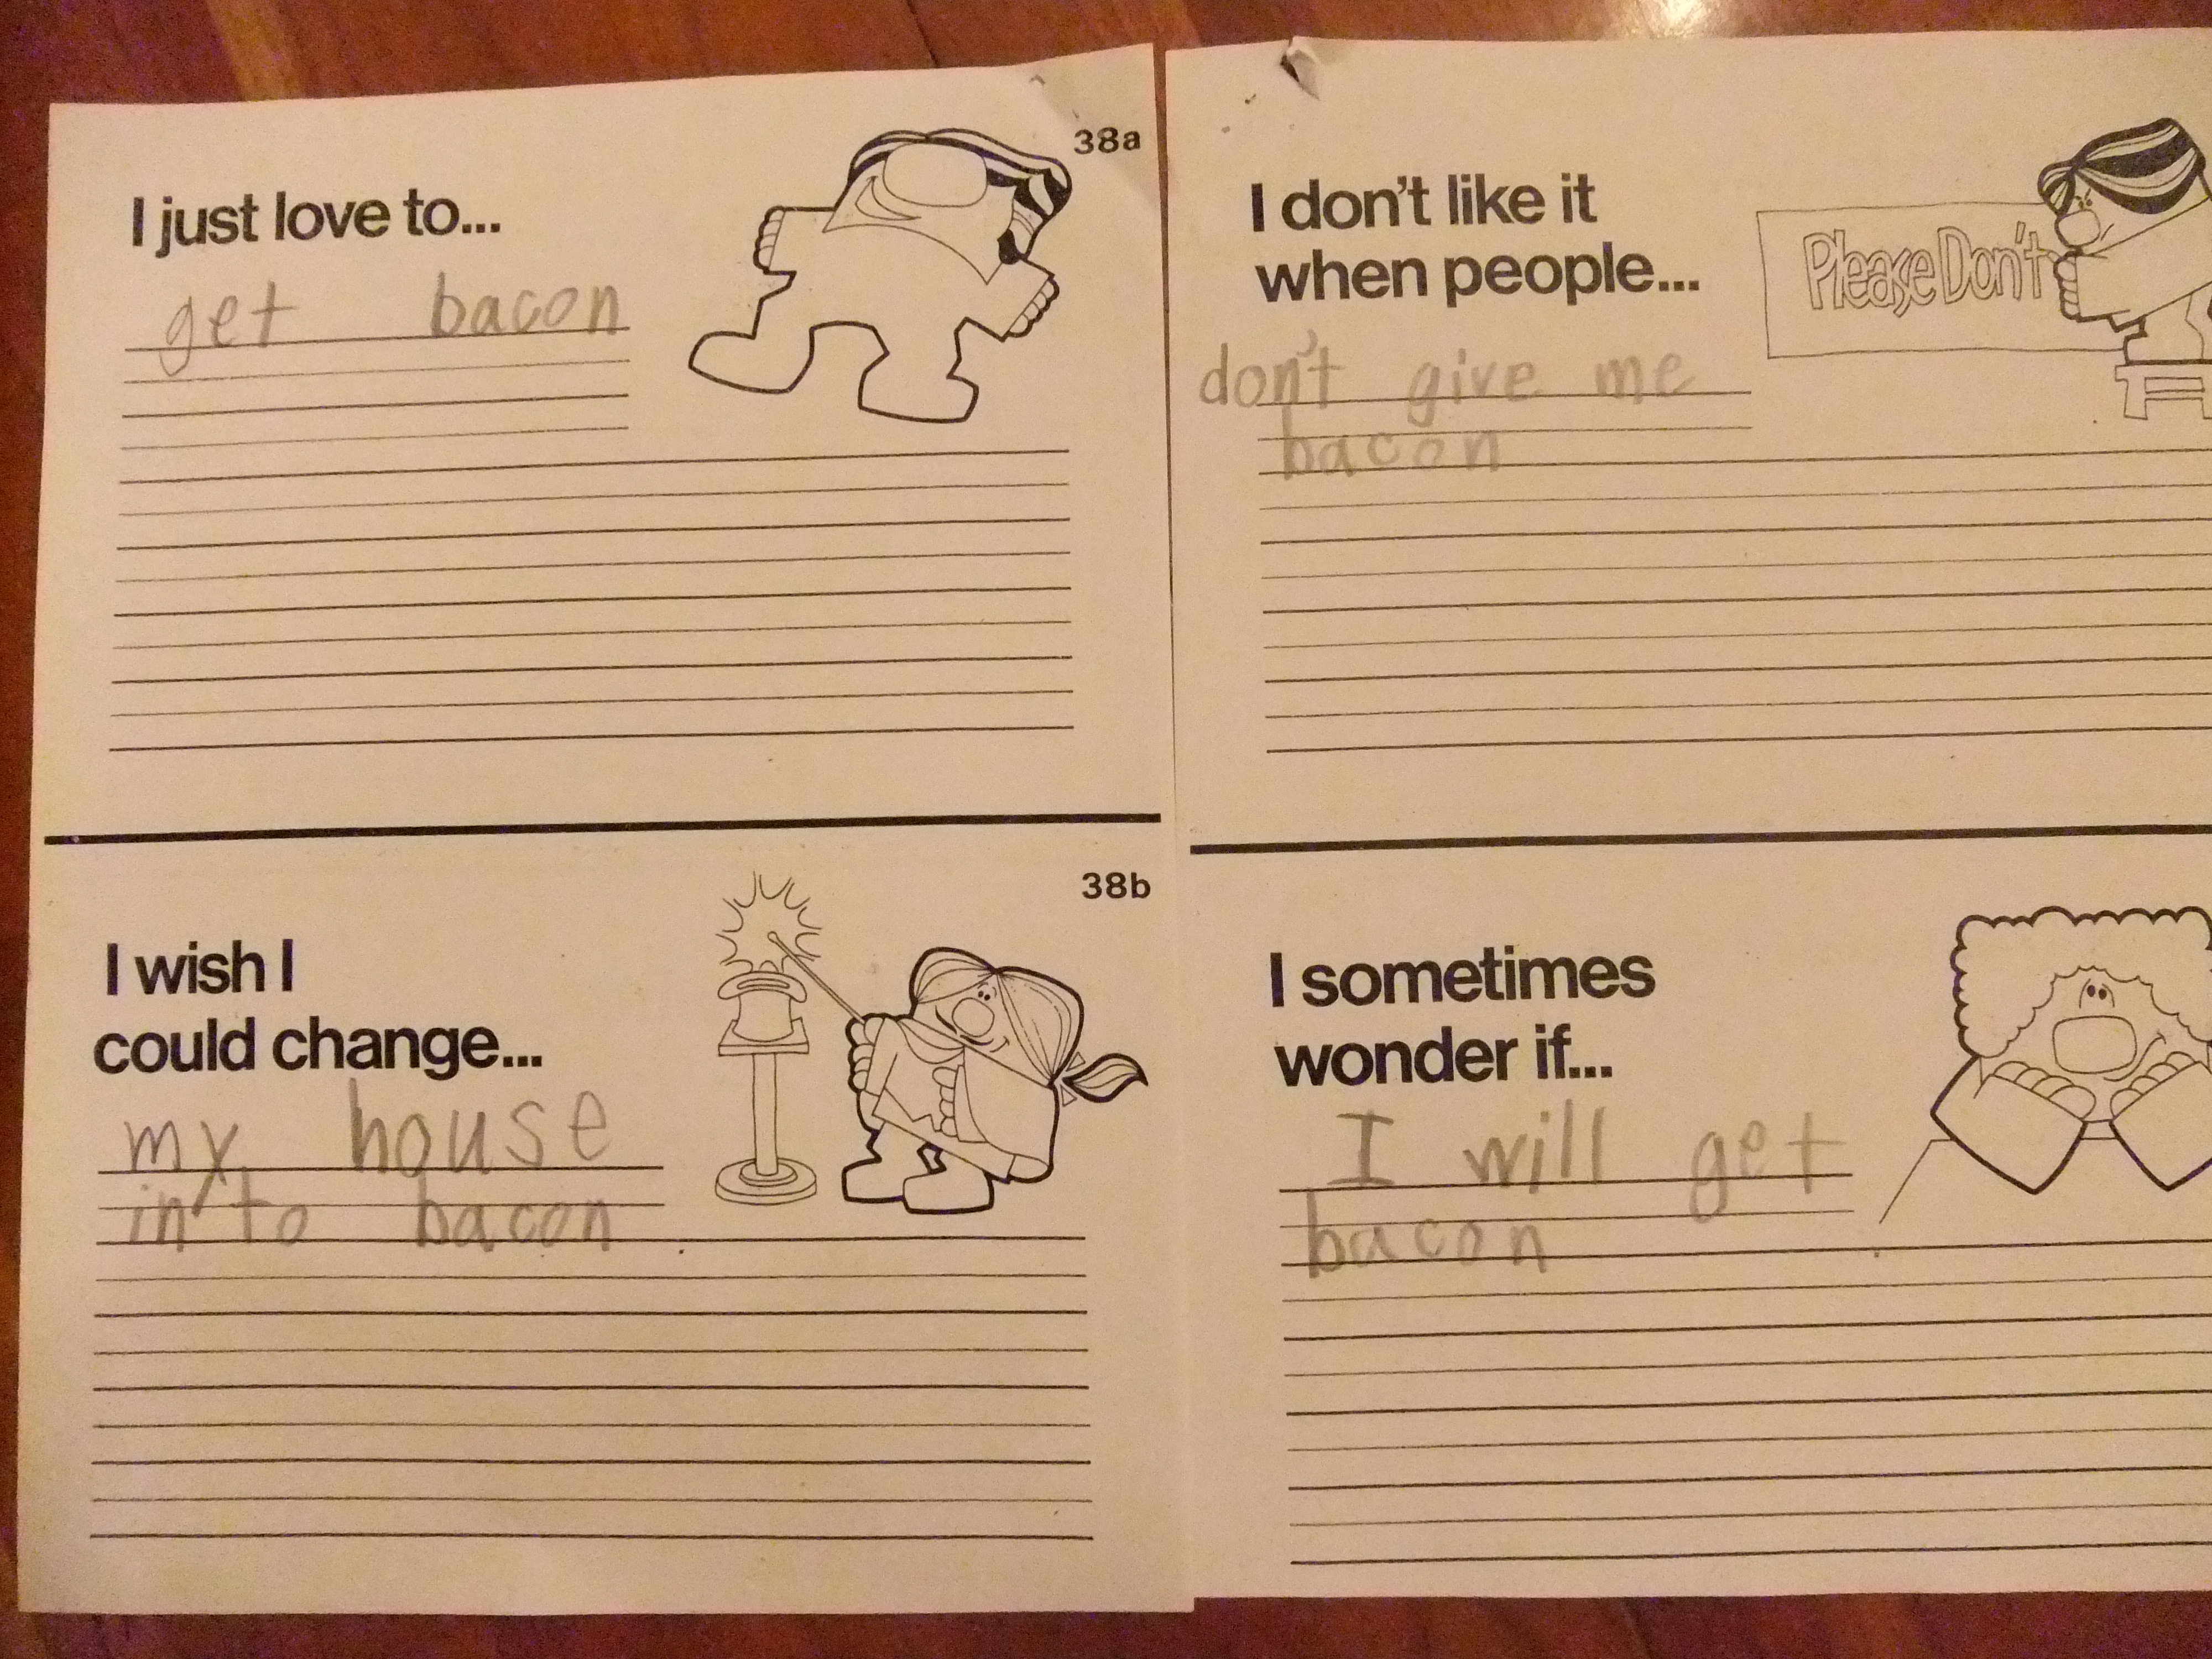 38a
I just love to...
get bacon
38b
I wish I
could change...
my house
in to bacon
I don't like it
when people...
Please Don't
don't give me
bacon
I sometimes
wonder if...
I will get
bacon